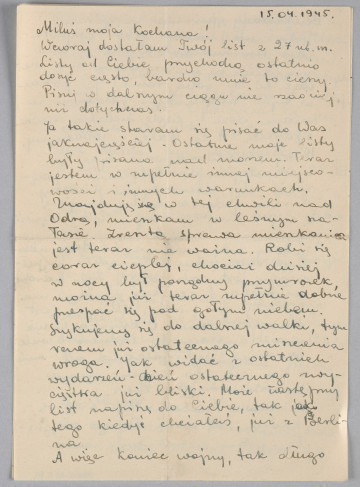 15.04.1945.
Miluś moja Kochana!
Wczoraj dostałam Twój list z 27 ub. m.
Listy od Ciebie przychodzą ostatnio
dosyć często, bardzo mnie to cieszy.
Pisz w dalszym ciągu nie rzadziej
niż dotychczas.
Ja także staram się pisać do Was
jaknajczęściej. Ostatnie moje listy
były pisane nad morzem. Teraz
jestem w zupełnie innej miejsco-
wości i innych warunkach.
Znajduję się w tej chwili nad
Odrą, mieszkam w leśnym sza-
łasie. Zresztą sprawa mieszkania
jest teraz nie ważna. Robi się
coraz cieplej, chociaż dzisiaj
w nocy był porządny przymrozek
można już teraz zupełnie dobrze
przespać się pod gołym niebem.
Szykujemy się do dalszej walki, tym
razem już ostatecznego zniszczenia
wroga. Jak widać z ostatnich
wydarzeń - dzień ostatecznego zwy-
cięstwa już bliski. Może następny
list napiszę do Ciebie, tak jak
tego kiedyś chciałaś, już z Berli-
na
A więc koniec wojny, tak długo